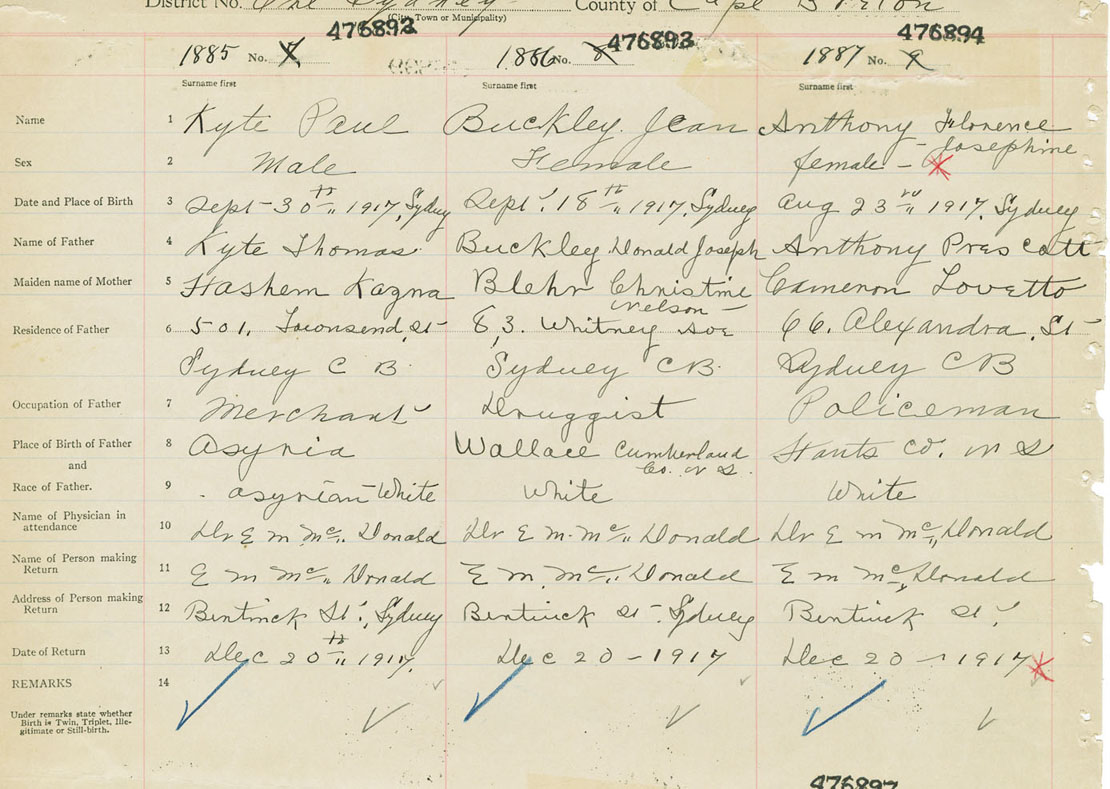 District No. One Sydney County of Cape Breton
(City, Town or Municipality)
476892 476893 476894
1885 No. 7 1886 No. 8 1887 No. 9
Surname first Surname first Surname first
Name 1 Kyte Paul Buckley. Jean Anthony Florence
Josephine
Sex 2 Male Female female –
Date and Place of Birth 3 Sept – 30th 1917, Sydney Sept. 18th 1917, Sydney Aug 23rd 1917, Sydney
Name of Father 4 Kyte Thomas Buckley Donald Joseph Anthony Prescott
Maiden name of Mother 5 Hashem Kazna Blehr Christine Cameron Lovetto
Nelson –
Residence of Father 6 501, Townsend, St 83. Whitney Ave 66. Alexandra, St
Sydney C B. Sydney CB. Sydney CB
Occupation of Father 7 Merchant Druggist Policeman
Place of Birth of Father 8 Asyria Wallace Cumberland Hants Co. N S
Co. N S.
and
Race of Father. 9 Asyrian White White White
Name of Physician in
attendance 10 Dr E M Mc Donald Dr E M. Mc Donald Dr E M Mc Donald
Name of Person making
Return 11 E M Mc Donald E M. Mc Donald E M Mc Donald
Address of Person making
Return 12 Bentinck St., Sydney Bentinck St – Sydney Bentinck St.
Date of Return 13 Dec 20th 1917. Dec 20 – 1917 Dec 20 – 1917
REMARKS 14
Under remarks state whether
Birth is Twin, Triplet, Ille-
gitimate or Still-birth.
476897